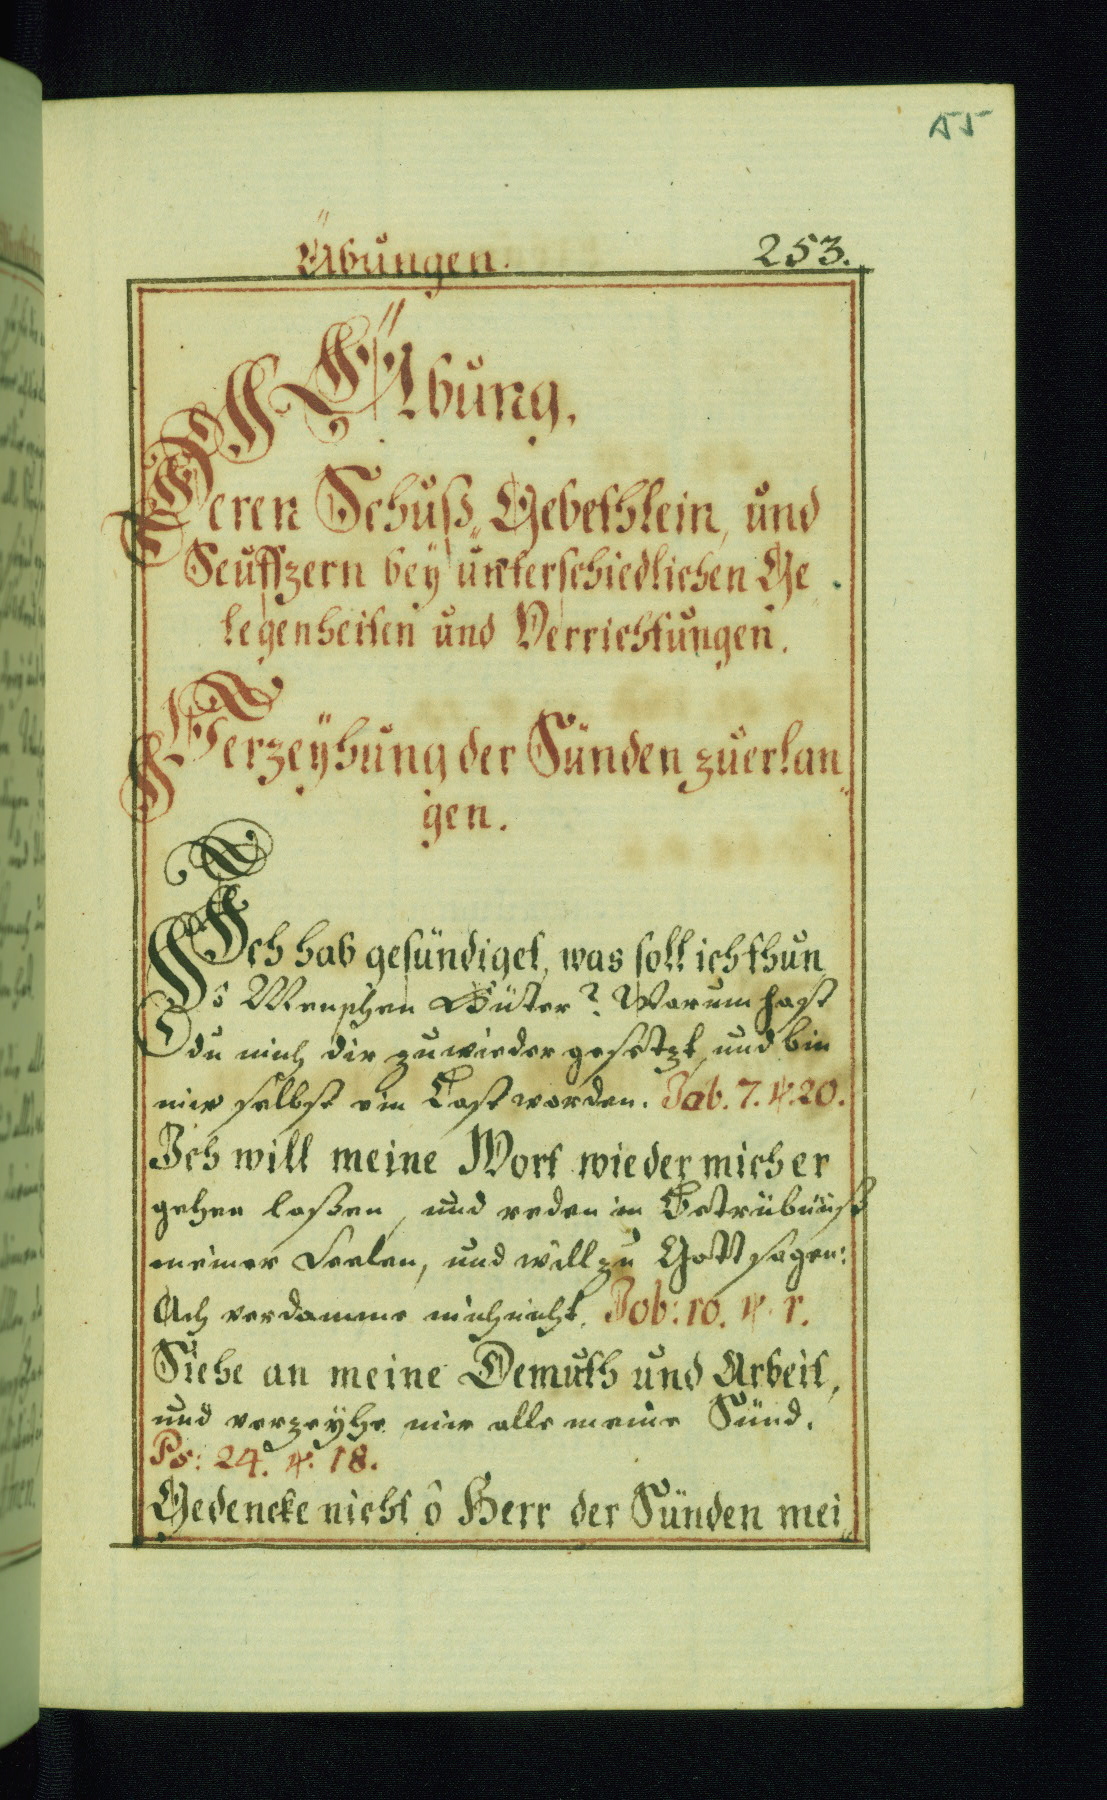 155
Übungen. 253.
Übung.
Deren Schuß„Gebethlein, und
Seuffzern bey unterschiedlichen Ge„
legenheiten und Verrichtungen.
Verzeÿhung der Sünden zuerlan„
gen.
Ich hab gesündiget, was soll ich thun
ô Menschen Hüter? Warum hast
du mich dir zuwieder gesetzt, und bin
mir selbst ein Last worden. Job. 7. ℣. 20.
Ich will meine Wort wieder mich er
gehen laßen, und reden in Betrübnüß
meiner Seelen, und will zu Gott sagen:
Ach verdamme mich nicht. Job: 10. ℣. 1.
Siehe an meine Demuth und Arbeit,
und verzeÿhe mir alle meine Sünd.
Ps: 24. ℣. 18.
Gedencke nicht ô Herr der Sünden mei„